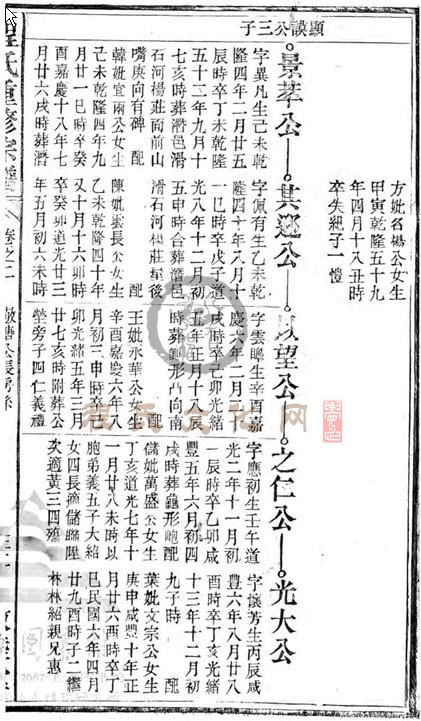 顯謨公三子
方妣名楊公女生
甲寅乾隆五十九
年四月十八丑時
卒失紀子一愷
景萃公—其遜公—以望公—之仁公—光大公
字異凡生己未乾
隆四年二月廿五
辰時卒丁未乾隆
五十二年九月十
七亥時葬濳邑滑
石河楊莊面前山
嘴庚向有碑 配
韓妣宜兩公女生
己未乾隆四年九
月廿一巳時卒癸
酉嘉慶十八年七
月廿六戌時葬濳
字佩有生乙未乾
隆四十年八月十
一巳時卒戊子道
光八年十二月初
五申時合葬濳邑
滑石河楊莊屋後
配
陳妣雲長公女生
乙未乾隆四十年
又十月十六卯時
卒癸卯道光廿三
年五月初六未時
字雲睥生辛酉嘉
慶六年二月二十
戌時卒己卯光緒
五年正月十八辰
時葬鍾形凸向南
配
王妣永華公女生
辛酉嘉慶六年八
月初三申時卒己
卯光緒五年三月
廿七亥時附葬公
塋旁子四仁義禮
字應初生壬午道
光二年十一月初
一辰時卒乙卯咸
豐五年六月初四
戌時葬龜形 配
儲妣萬盛公女生
丁亥道光七年十
一月廿八未時以
胞弟義五子大緒
女四長適儲
次適黃三四殤
字懷芳生丙辰咸
豐六年八月廿八
酉時卒丁亥光緒
十三年十二月初
九子時 配
葉妣文宗公女生
庚申咸豐十年正
月廿六酉時卒丁
巳民國六年四月
廿九酉時子二繼
林林紹親兄惠
氏重修宗譜
卷之二
公長房系